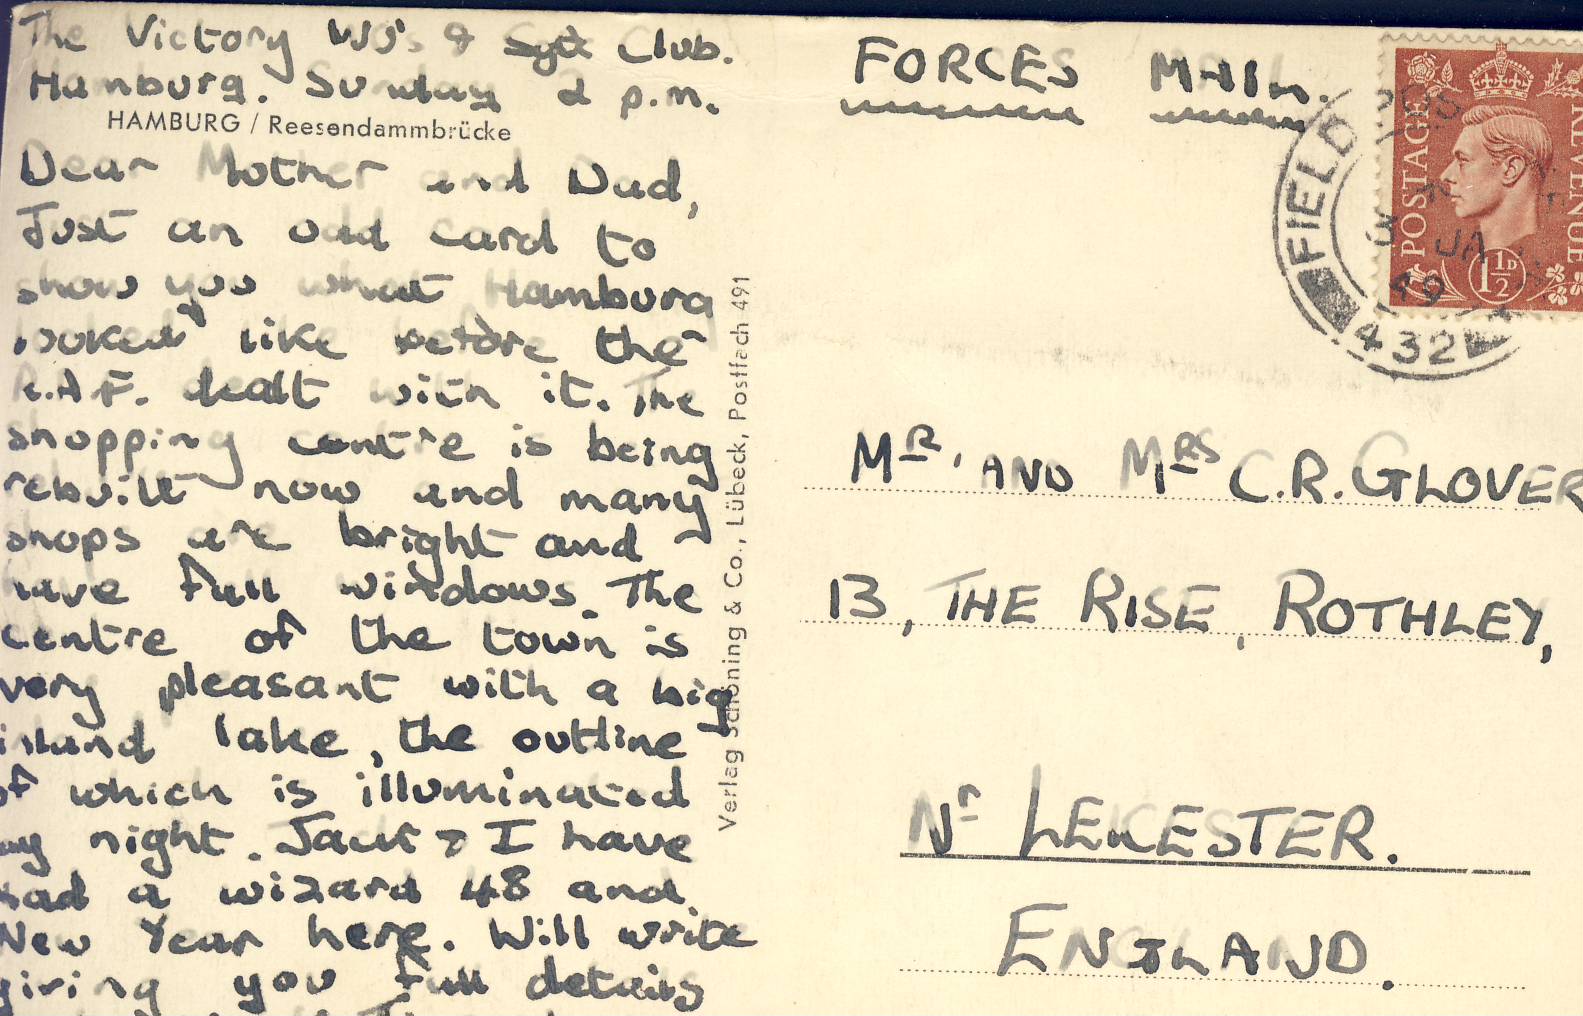 The Victory WO's & Sgts Club.
Hamburg. Sunday 2 p.m.
HAMBURG / Reesendammbrücke
Dear Mother and Dad,
Just an odd card to
show you what Hamburg
looked like before the
R.A.F. dealt with it. The
shopping centre is being
rebuilt now and many
shops are bright and
have full windows. The
centre of the town is
very pleasant with a big
inland lake, the outline
of which is illuminated
by night. Jack & I have
had a wizard 48 and
New Year here. Will write
giving you full details
Verlag Schöning & Co., Lübeck, Postfach 491
FORCES MAIL.
POSTAGE REVENUE
1½D
FIELD POST
3 JA
49
432
MR. AND MRS C.R. GLOVER
13, THE RISE, ROTHLEY,
Nr LEICESTER.
ENGLAND.